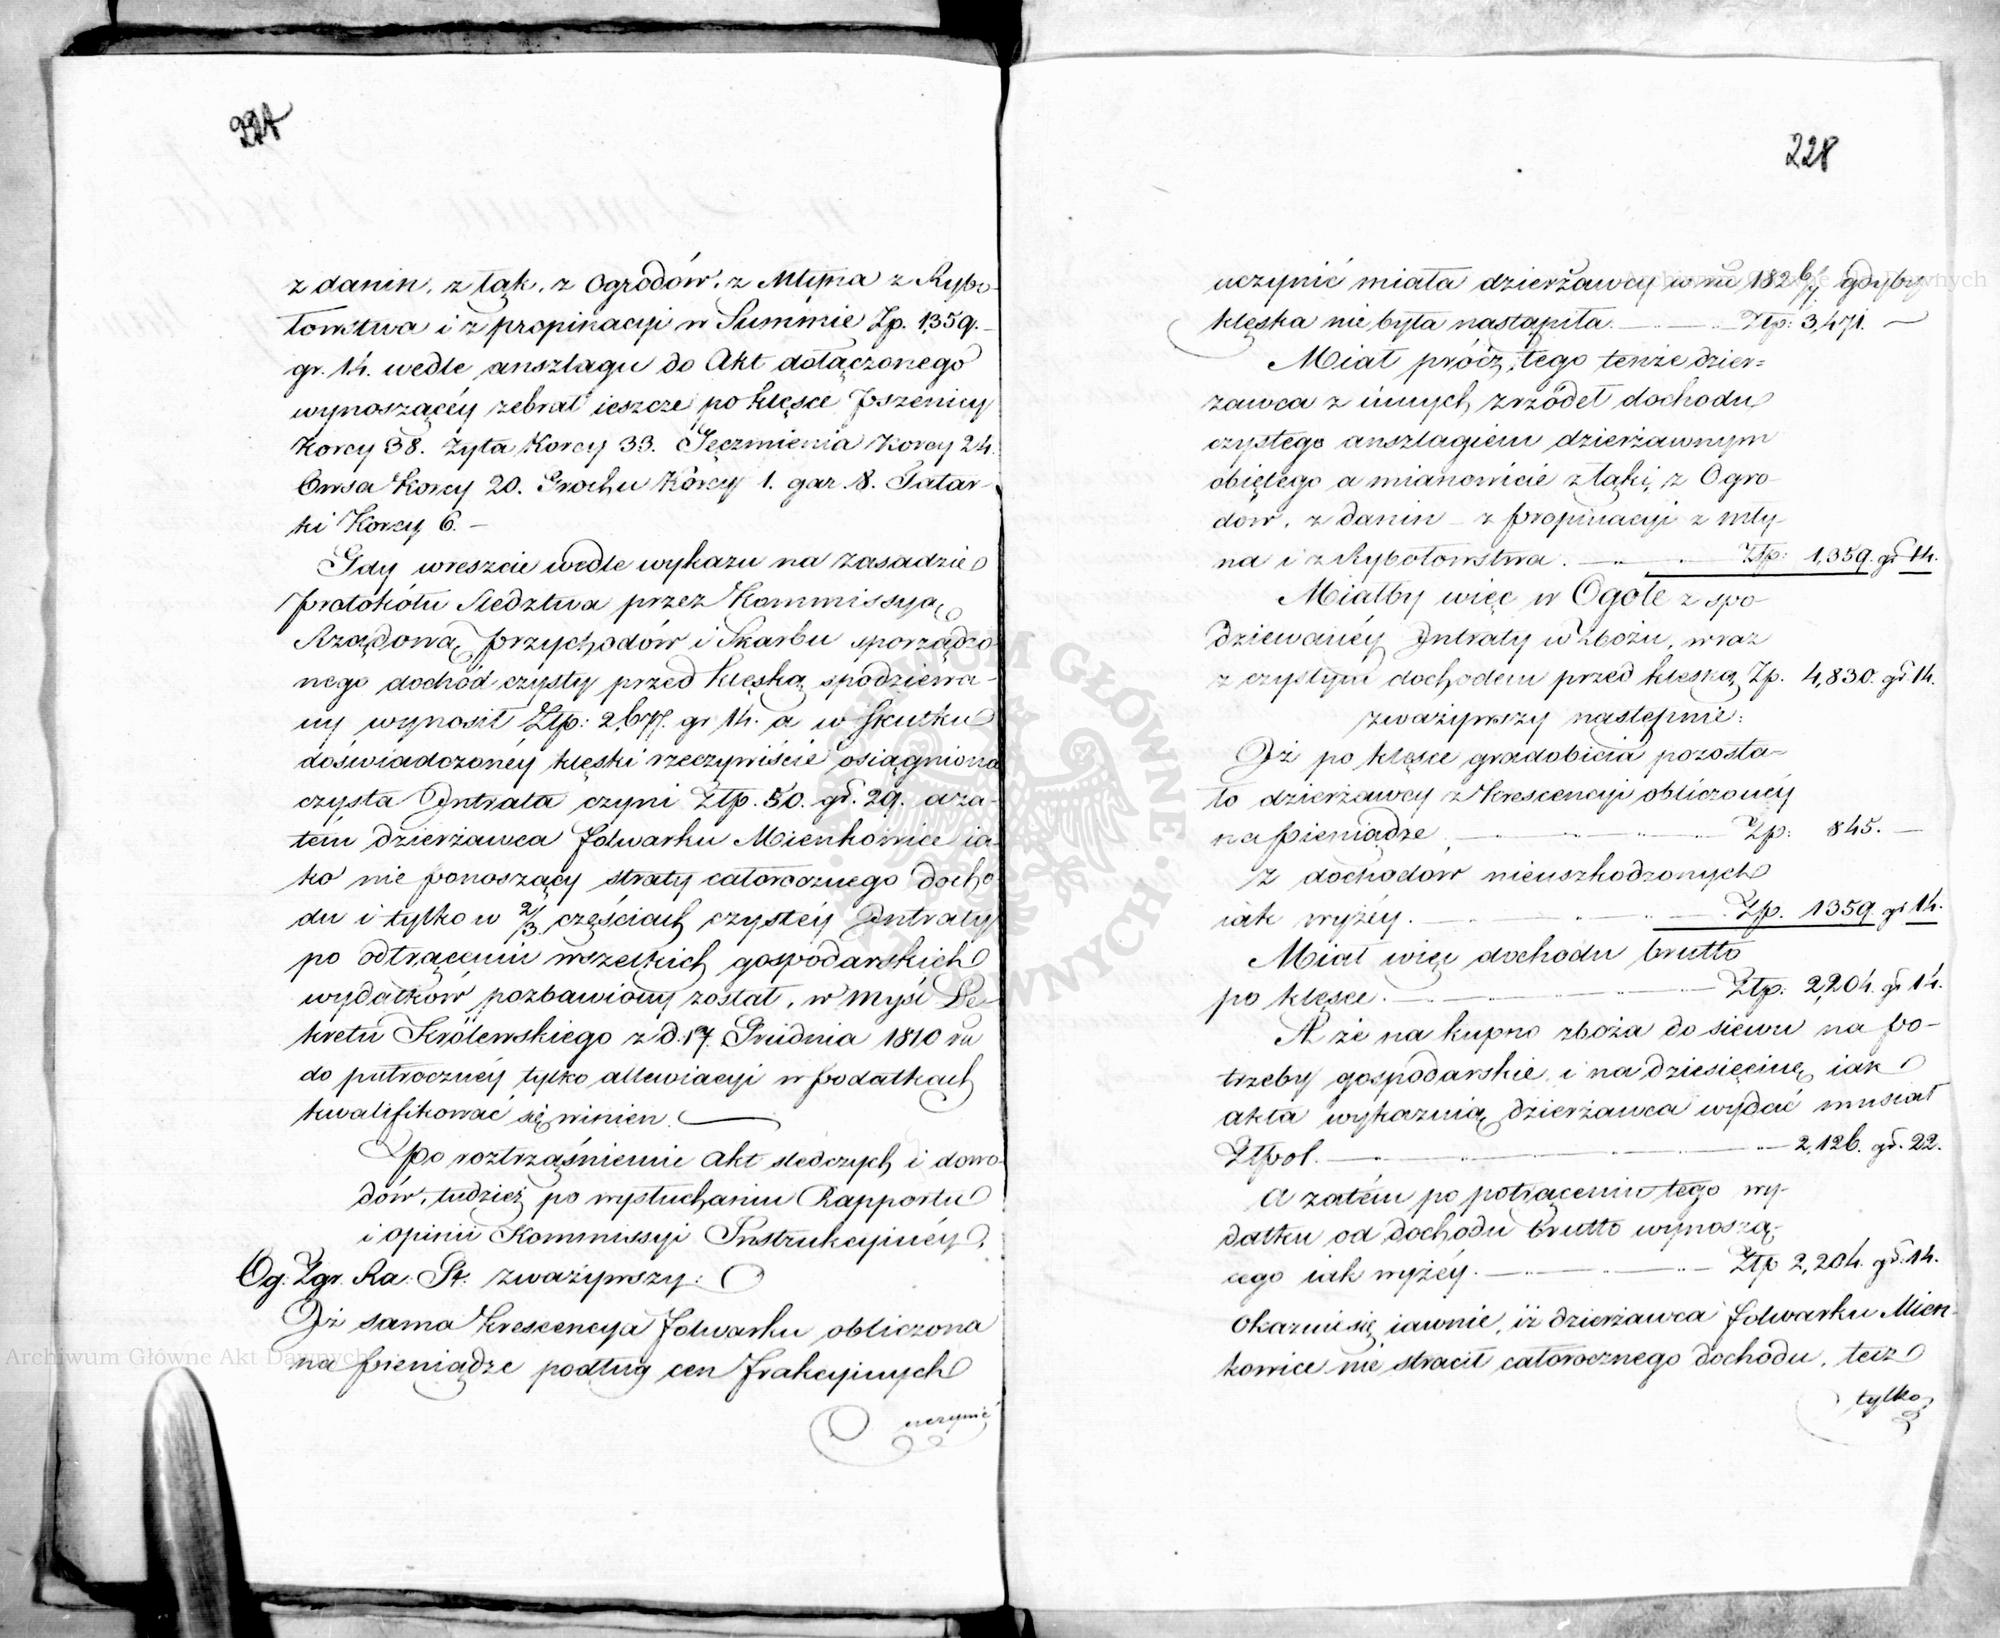 227
z danin, z łąk, z Ogrodów, z Młyna z Rybo-
łowstwa i z propinacyi w Summie Zp. 1,359.
gr. 14. wedle anszlagu do Akt dołączonego
wynoszącéy zebrał ieszcze po klęsce Pszenicy
Korcy 38. Żyta Korcy 33. Jęczmienia Korcy 24.
Owsa Korcy 20. Grochu Korcy 1. gar. 8. Tatar-
ki Korcy 6. –
Gdy wreszcie wedle wykazu na zasadzie
protokółu śledztwa przez Kommissyą
Rządową Przychodów i Skarbu sporządzo-
nego dochód czysty przed klęską spodziewa-
ny wynosił Złp: 2,677. gr 14. a w skutku
doświadczonéy klęski rzeczywiście osiągniona
czysta Intrata czyni Złp. 50. gr. 29. a za-
tém dzierżawca folwarku Mienkowice ia-
ko nie ponoszący straty całorocznego docho-
du i tylko w 2/3 częściach czystéy Intraty
po odtrąceniu wszelkich gospodarskich
wydatków pozbawiony został, w myśl De-
kretu Królewskiego z d. 17. Grudnia 1810 ru
do półrocznéy tylko allewiacyi w podatkach
kwalifikować się winien.
Po roztrząśnieniu Akt śledczych i dowo-
dów, tudzież po wysłuchaniu Rapportu
i opinii Kommissyi Instrukcyinéy,
Og: Zgr. Ra: St. zważywszy:
Iż sama krescencya folwarku obliczona
na pieniądze podług cen frakcyinych
uczynić
228
uczynić miała dzierżawcy w ru 182 6/7 gdyby
klęska nie była nastąpiła. Złp: 3,471. –
Miał prócz tego tenże dzier=
żawca z innych zrzódeł dochodu
czystego anszlagiem dzierżawnym
obiętego a mianowicie z łąki, z Ogro-
dów, z danin – z propinacyi z mły-
na i z Rybołowstwa. Złp: 1,359. gr 14.
Miałby więc w Ogóle z spo-
dziewanéy Intraty w zbożu, wraz
z czystym dochodem przed klęską Zp. 4,830. gr 14.
zważywszy następnie:
Iż po klęsce gradobicia pozosta-
ło dzierżawcy z krescencyi obliczonéy
na pieniądze Zp: 845. –
Z dochodów nieuszkodzonych
iak wyżéy. Zp. 1359. gr 14.
Miał więc dochodu brutto
po klęsce. Złp: 2,204. gr 14.
A że na kupno zboża do siewu na po-
trzeby gospodarskie i na dziesięcinę iak
akta wykazuią dzierżawca wydać musiał
Złpol. 2,126. gr. 22.
A zatém po potrąceniu tego wy-
datku od dochodu brutto wynoszą-
cego iak wyżéy. Złp 2,204. gr. 14.
Okazuie się iawnie, iż dzierżawca folwarku Mien-
kowice nie stracił całorocznego dochodu, lecz
tylko
Archiwum Główne Akt Dawnych
Archiwum Główne Akt Dawnych